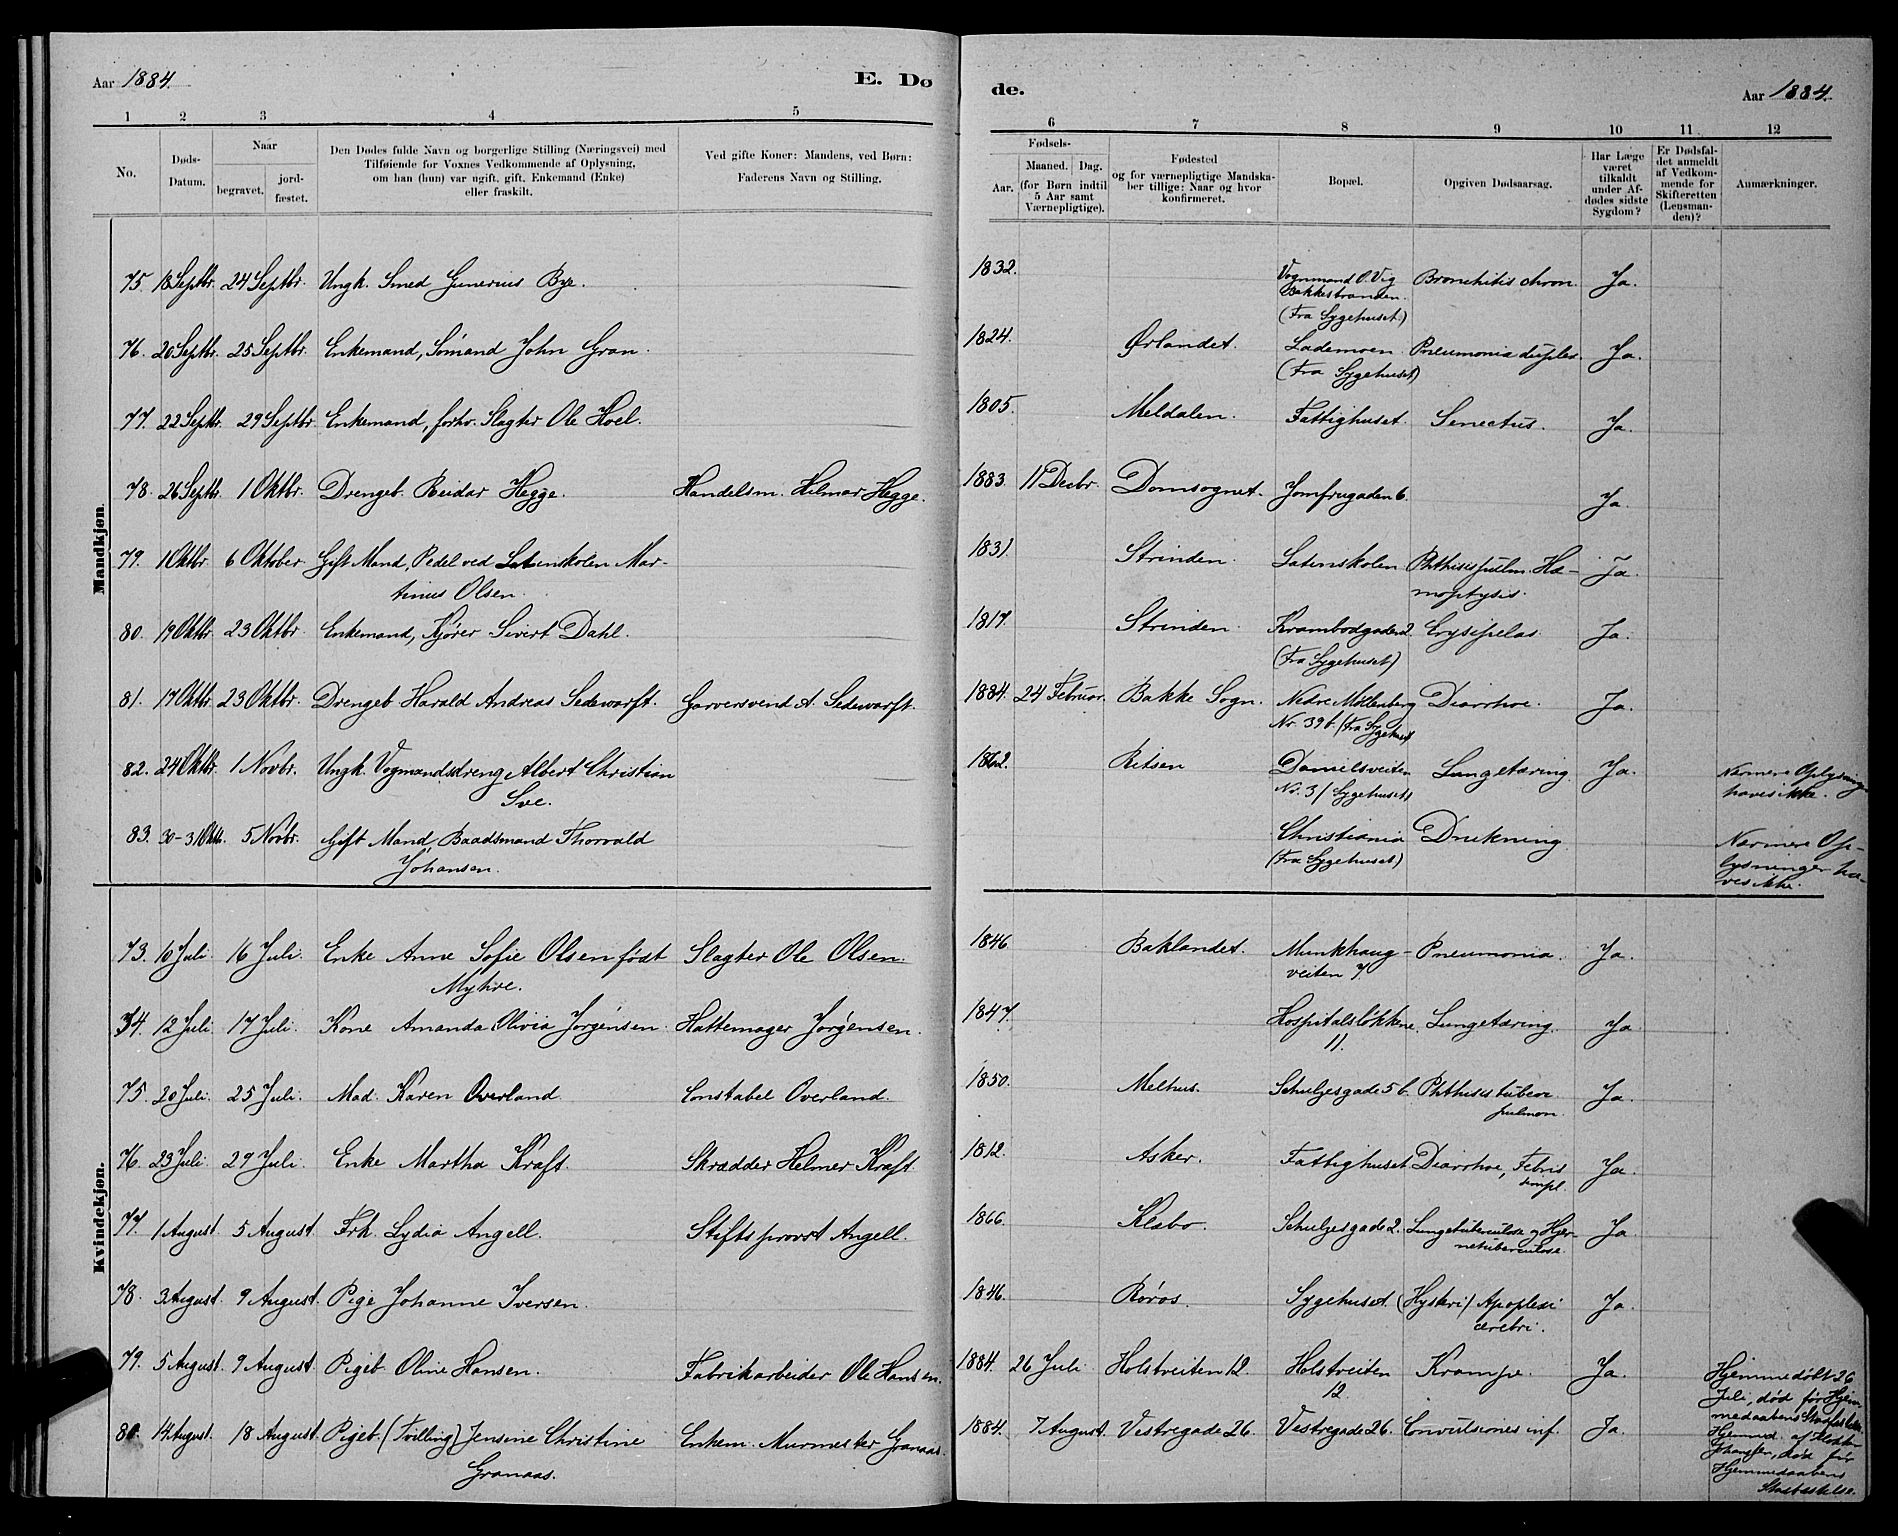 Aar 1884. E. Dø
1 2 3 4 5
No. Døds-Datum. Naar begravet. jord-fæstet. Den Dødes fulde Navn og borgerlige Stilling (Næringsvei) med Tilføiende for Voxnes Vedkommende af Oplysning, om han (hun) var ugift, gift, Enkemand (Enke) eller fraskilt. Ved gifte Koner: Mandens, ved Børn: Faderens Navn og Stilling.
Mandkjøn.
75. 18 Septbr. 24 Septbr. Ungk. Smed Gunerius Bye.
76. 20 Septbr. 25 Septbr. Enkemand, Sømand John Gran.
77. 22 Septbr. 29 Septbr. Enkemand, forhv. Slagter Ole Hoel.
78. 26 Septbr. 1 Oktbr. Drengeb. Reidar Hegge. Handelsm. Helmar Hegge.
79. 1 Oktbr. 6 Oktober. Gift Mand, Pedel ved Latinskolen Mar-
tinus Olsen.
80. 19 Oktbr. 23 Oktbr. Enkemand, Kjører Sivert Dahl.
81. 17 Oktbr. 23 Oktbr. Drengeb Harald Andreas Sedewarft. Garversvend A. Sedewarft.
82. 24 Oktbr. 1 Novbr. Ungk. Vogmandsdreng Albert Christian
Sve.
83. 30-31 Oktb. 5 Novbr. Gift Mand Baadsmand Thorvald
Johansen.
Kvindekjøn.
73. 10 Juli. 16 Juli. Enke Anne Sofie Olsen født Slagter Ole Olsen.
Myhre.
74. 12 Juli 17 Juli. Kone Amanda Olivia Jørgensen. Hattemager Jørgensen.
75. 20 Juli. 25 Juli. Mad. Karen Overland. Constabel Overland.
76. 23 Juli. 29 Juli. Enke Martha Kraft. Skrædder Helmer Kraft.
77. 1 August. 5 August. Frk. Lydia Angell. Stiftsprovst Angell.
78. 3 August. 9 August. Pige Johanne Iversen.
79. 5 August. 9 August. Pigeb. Oline Hansen. Fabrikarbeider Ole Hansen.
80. 14 August. 18 August. Pigeb. (Tvilling) Jensine Christine Enkem. Murmester Granaas.
Granaas.
de. Aar 1884.
6 7 8 9 10 11 12
Fødsels- Aar. Maaned. Dag. (for Børn indtil 5 Aar samt Værnepligtige). Fødested og for værnepligtige Mandska-ber tillige: Naar og hvor konfirmeret. Bopæl. Opgiven Dødsaarsag. Har Læge været tilkaldt under Af-dødes sidste Sygdom? Er Dødsfal-det anmeldt af Vedkom-mende for Skifteretten (Lensman-den)? Anmærkninger.
1832. Vognmand O. Vig Bronchitis chron. Ja.
Bakkestranden.
(Fra Sygehuset.)
1824. Ørlandet. Lademoen. Pneumonia duplex. Ja.
(Fra Sygehuset)
1805. Meldalen. Fattighuset. Senectus. Ja.
1883. 11 Decbr. Domsognet. Jomfrugaden 6. Ja.
1831. Strinden. Latinskolen Phthisis pulm. Hæ- Ja.
moptysis.
1817. Strinden. Krambodgaden 2. Erysipelas. Ja.
(Fra Sygehuset)
1884. 24 Februar. Bakke Sogn. Nedre Møllenberg Diarrhoe. Ja.
No. 39 b. (Fra Sygehuset)
1862. Ritsen Danielsveiten Lungetæring. Ja. Nærmere Oplysning
No. 3 / Sygehuset) haves ikke.
Christiania Drukning. Nærmere Op-
(Fra Sygehuset) lysninger ha-
ves ikke.
1846 Baklandet. Munkhaug- Pneumonia. Ja.
veiten 7
1847. Hospitalsløkkene Lungetæring. Ja
11.
1850. Melhus. Schultzesgade 5 b. Phthisis tuberc. Ja.
pulmon.
1812. Asker. Fattighuset Diarrhoe, Febris Ja.
simpl.
1866. Klæbo. Schultzesgade 2. Lungetuberculose og Hjer- Ja.
netuberculose.
1846. Røros. Sygehuset. (Hysteri) Apoplexi Ja.
cerebri.
1884. 26 Juli. Holstveiten 12. Holstveiten Krampe. Ja. Hjemmedøbt 26
12. Juli, død før Hjem-
medaabens Stadfæstelse.
1884. 7 August. Vestregade 26. Vestregade 26. Convulsiones inf. Ja. Hjemmed. af Klokker
død før
Hjemmedaabens
Stadfæstelse.